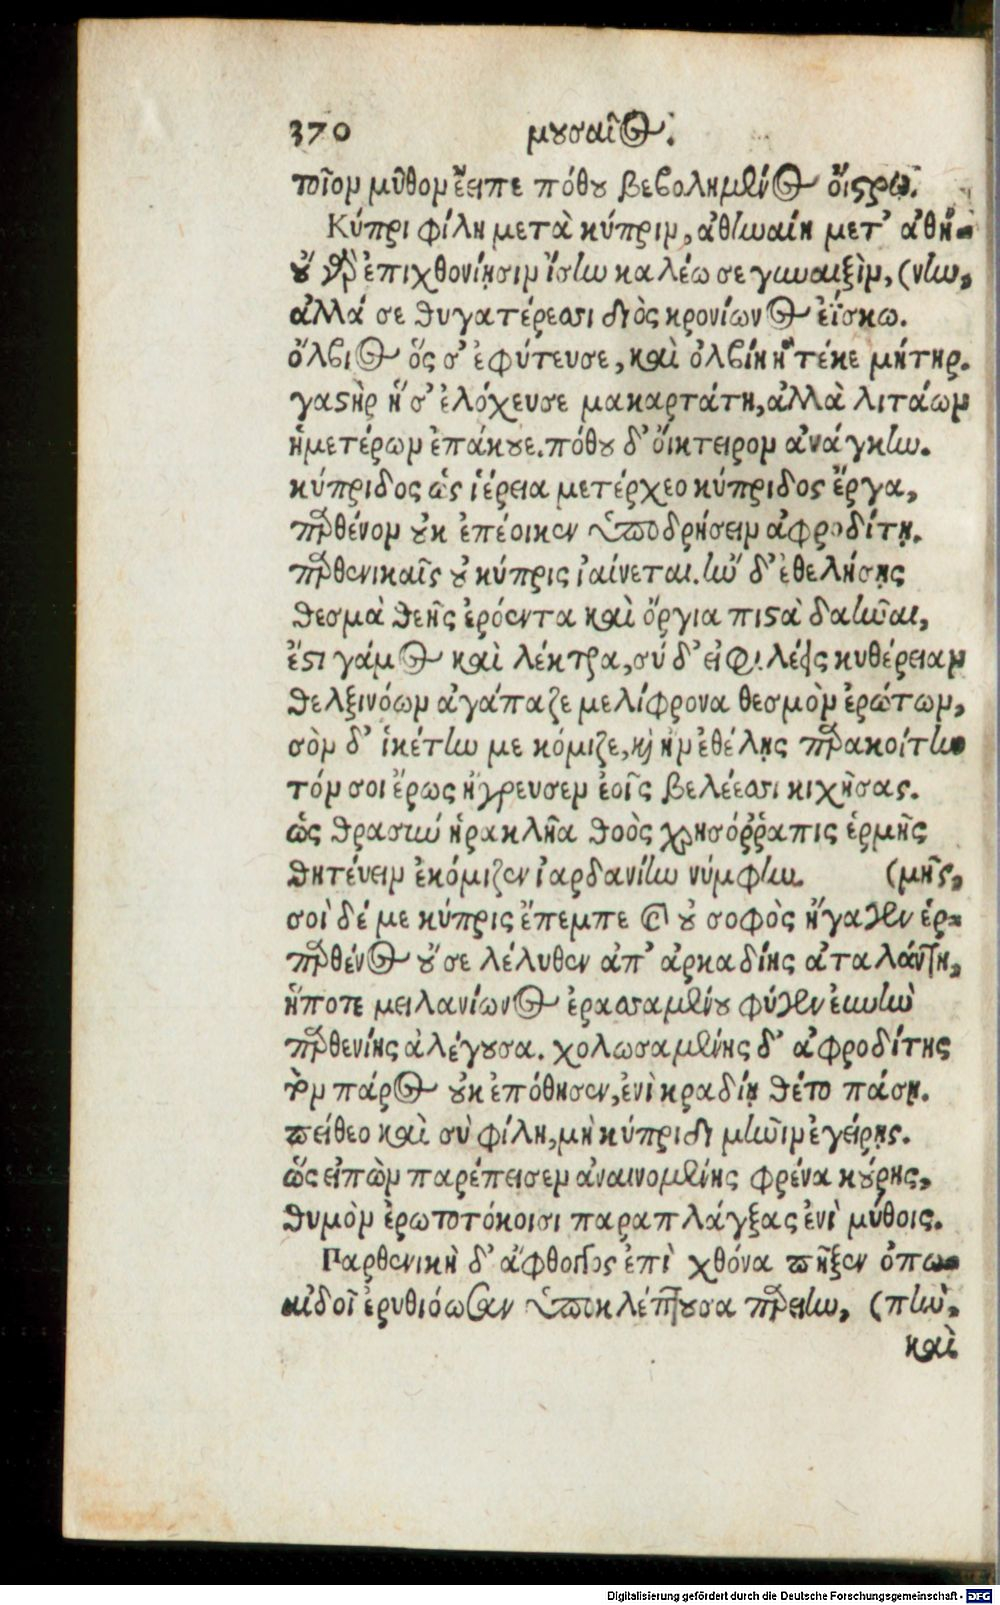 370 μουσαῖος.
τοῖον μῦθον ἔειπε πόθου βεβολημένος οἴστρῳ.
Κύπρι φίλη μετὰ κύπριν, ἀθηναίη μετ' ἀθή-
οὐ γὰρ ἐπιχθονίῃσιν ἴσην καλέω σε γυναιξὶν, (νην,
ἀλλά σε θυγατέρεσσι διὸς κρονίωνος ἐΐσκω.
ὄλβιος ὅς σ' ἐφύτευσε, καὶ ὀλβίη ἣ τέκε μήτηρ.
γαστὴρ ἥ σ' ἐλόχευσε μακαρτάτη, ἀλλὰ λιτάων
ἡμετέρων ἐπάκουε. πόθου δ' οἴκτειρον ἀνάγκην.
κύπριδος ὡς ἱέρεια μετέρχεο κύπριδος ἔργα,
παρθένον οὐκ ἐπέοικεν ὑποδρήσειν ἀφροδίτῃ.
παρθενικαῖς οὐ κύπρις ἰαίνεται. ἢν δ' ἐθελήσῃς
θεσμὰ θεῆς ἐρόεντα καὶ ὄργια πιστὰ δαῆναι,
ἔστι γάμος καὶ λέκτρα, σύ δ' εἰ φιλέεις κυθέρειαν
θελξινόων ἀγάπαζε μελίφρονα θεσμὸν ἐρώτων,
σὸν δ' ἱκέτην με κόμιζε, καὶ ἢν ἐθέλῃς παρακοίτην
τόν σοι ἔρως ἤγρευσεν ἑοῖς βελέεσσι κιχῆσας.
ὡς θρασὺν ἡρακλῆα θοὸς χρυσόρραπις ἑρμῆς
θητεύειν ἐκόμιζεν ἰαρδανίην νύμφην. (μῆς,
σοὶ δέ με κύπρις ἔπεμπε καὶ οὐ σοφὸς ἤγαγεν ἑρ-
παρθένος οὔ σε λέληθεν ἀπ' ἀρκαδίης ἀταλάντη,
ἥ ποτε μειλανίωνος ἐρασσαμένου φύγεν εὐνὴν
παρθενίης ἀλέγουσα. χολωσαμένης δ' ἀφροδίτης
τὸν πάρος οὐκ ἐπόθησεν, ἐνὶ κραδίῃ θέτο πάσῃ.
πείθεο καὶ σὺ φίλη, μὴ κύπριδι μῆνιν ἐγείρῃς.
ὣς εἰπὼν παρέπεισεν ἀναινομένης φρένα κούρης,
θυμὸν ἐρωτοτόκοισι παραπλάγξας ἐνὶ μύθοις.
Παρθενικὴ δ' ἄφθογγος ἐπὶ χθόνα πῆξεν ὀπω-
αἰδοῖ ἐρυθιόωσαν ὑποκλέπτουσα παρειήν, (πὴν,
καὶ
Digitalisierung gefördert durch die Deutsche Forschungsgemeinschaft - DFG